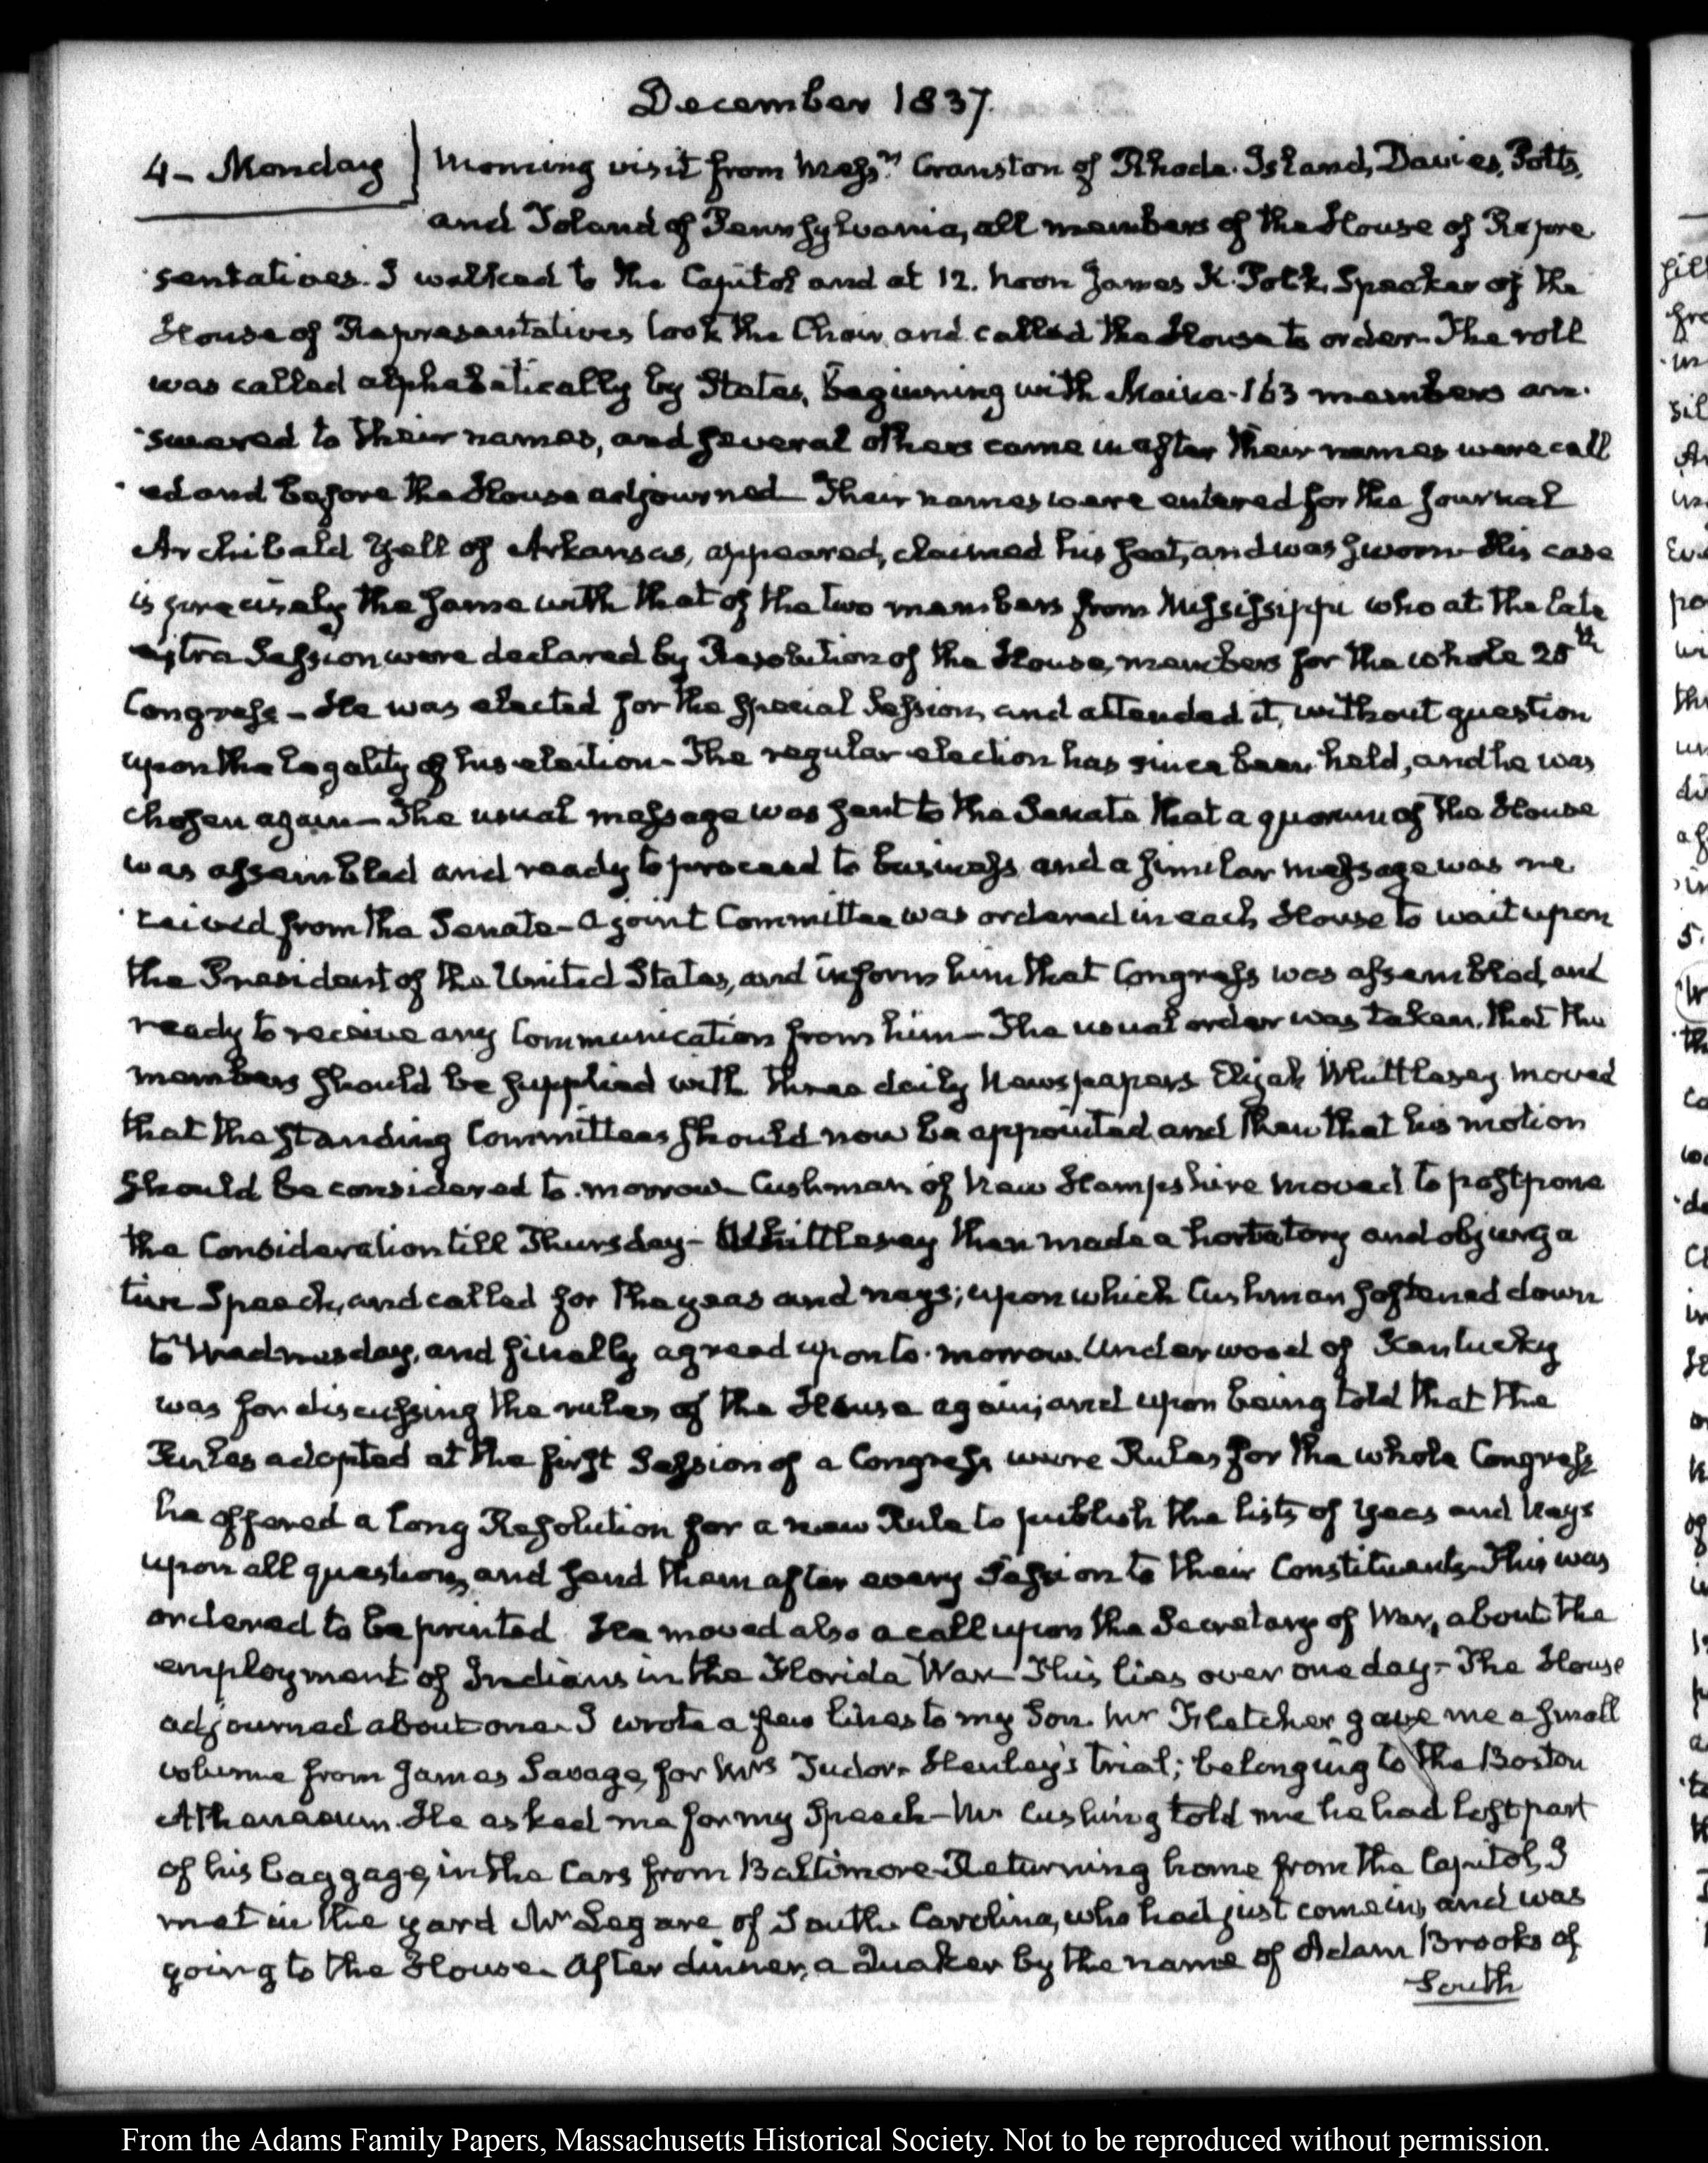 December 1837.
4 - Monday } Morning visit from Messrs. Cranston of Rhode-Island, Davies, Potts,
and Toland of Pennsylvania, all members of the House of Repre
sentatives. I walked to the Capitol and at 12. noon James K. Polk, Speaker of the
House of Representatives took the Chair and called the House to order. The roll
was called alphabetically by States, beginning with Maine - 163 members an-
swered to their names, and several others came in after their names were call
ed and before the House adjourned - Their names were entered for the Journal
Archibald Yell of Arkansas, appeared, claimed his seat, and was sworn - His case
is precisely the same with that of the two members from Mississippi who at the late
extra Session were declared by Resolution of the House, members for the whole 25th
Congress - He was elected for the special Session, and attended it, without question
upon the legality of his election - The regular election has since been held, and he was
chosen again - The usual message was sent to the Senate that a quorum of the House
was assembled and ready to proceed to business and a similar message was re
ceived from the Senate - a joint Committee was ordered in each House to wait upon
the President of the United States, and inform him that Congress was assembled, and
ready to receive any Communication from him - The usual order was taken, that the
members should be supplied with three daily Newspapers Elijah Whittlesey moved
that the standing Committees should now be appointed and then that his motion
should be considered to-morrow - Cushman of New Hampshire moved to postpone
the Consideration till Thursday - Whittlesey then made a hortatory and objurga
tive Speech, and called for the yeas and nays; upon which Cushman softened down
to Wednesday, and finally agreed upon to-morrow. Underwood of Kentucky
was for discussing the rules of the House again; and upon being told that the
Rules adopted at the first Session of a Congress were Rules for the whole Congress
he offered a long Resolution for a new Rule to publish the lists of Yeas and Nays
upon all questions, and send them after every Session to their Constituents - This was
ordered to be printed. He moved also a call upon the Secretary of War, about the
employment of Indians in the Florida War - This lies over one day - The House
adjourned about one - I wrote a few lines to my Son. Mr Fletcher gave me a small
volume from James Savage, for Mrs Tudor - Henley's trial; belonging to the Boston
Athenaeum. He asked me for my Speech - Mr Cushing told me he had left part
of his baggage, in the Cars from Baltimore - Returning home from the Capitol, I
met in the yard Mr Legare of South Carolina, who had just come in, and was
going to the House. After dinner, a Quaker by the name of Adam Brooks of
South
From the Adams Family Papers, Massachusetts Historical Society. Not to be reproduced without permission.